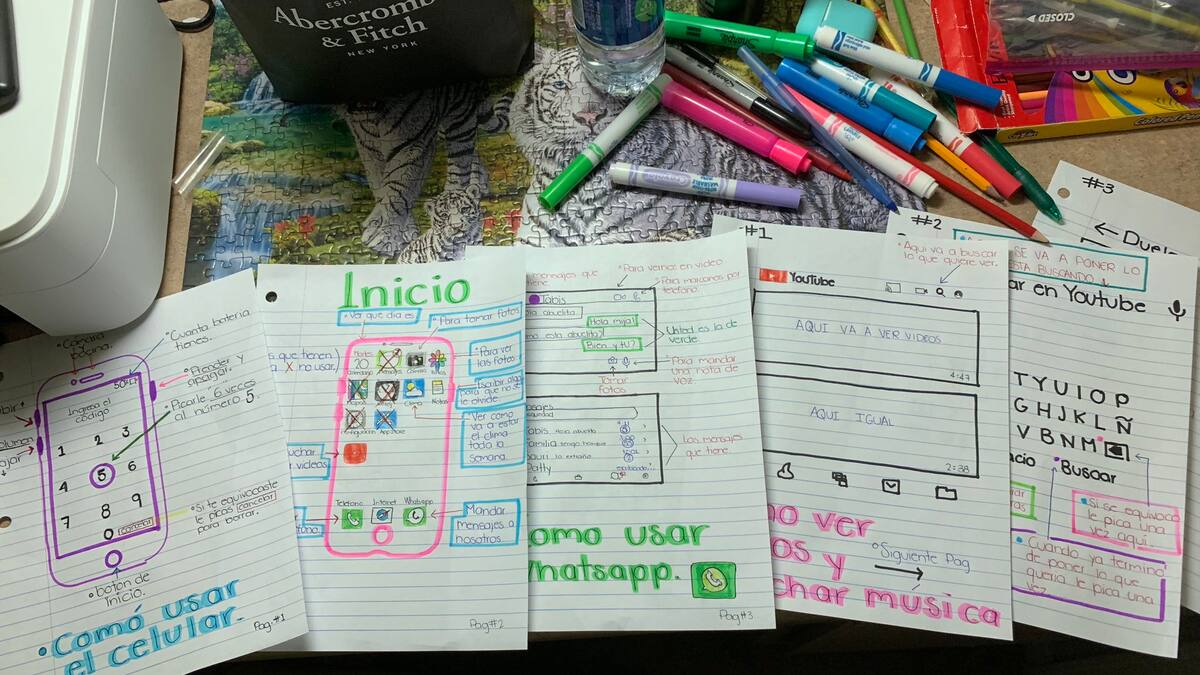 EST.
Abercrombie
& Fitch
NEW YORK
CLOSED
Colored Pencils
Cuanta bateria
tienes.
50%
Prender y
apagar.
Picarle 6 veces
al número 5.
Ingresa el
código
1 2 3
4 5 6
7 8 9
0 cancelar
Si te equivocaste
le picas cancelar
para borrar.
botón de
Inicio.
Comó usar
el celular.
Pag.#1
Inicio
Ver que dia es
Para tomar fotos
s que tienen
a X no usar.
Martes
20
Para ver
las fotos
Escribir algo
para que no se
le olvide.
Clima
Notas
App Store
Ver como
va a estar
el clima
toda la
semana.
uchar
videos
Telefono Internet Whatsapp
Mandar
mensajes a
nosotros.
Pag#2
mensajes que
tiene
Para vernos en video
Para marcarnos por
telefono.
Tobis
Hola mija!
mo esta abuelita?
Bien y tu?
Usted es la de
verde
Tomar
fotos
Para mandar
una nota de
voz.
Los mensaje
que tiene.
omo usar
Whatsapp.
Pag#3
#1
YouTube
Aqui va a buscar
lo que quiere ver.
AQUI VA A VER VIDEOS
4:47
AQUI IGUAL
2:38
mo ver
os y
char musica
Siguiente Pag
#2
SE VA A PONER LO
ESTA BUSCANDO
ar en Youtube
T Y U I O P
G H J K L Ñ
V B N M
acio
Buscar
Si se equivoco
le pica una
vez aqui.
Cuando ya termino
de poner lo que
queria le pica una
vez
#3
← Duel